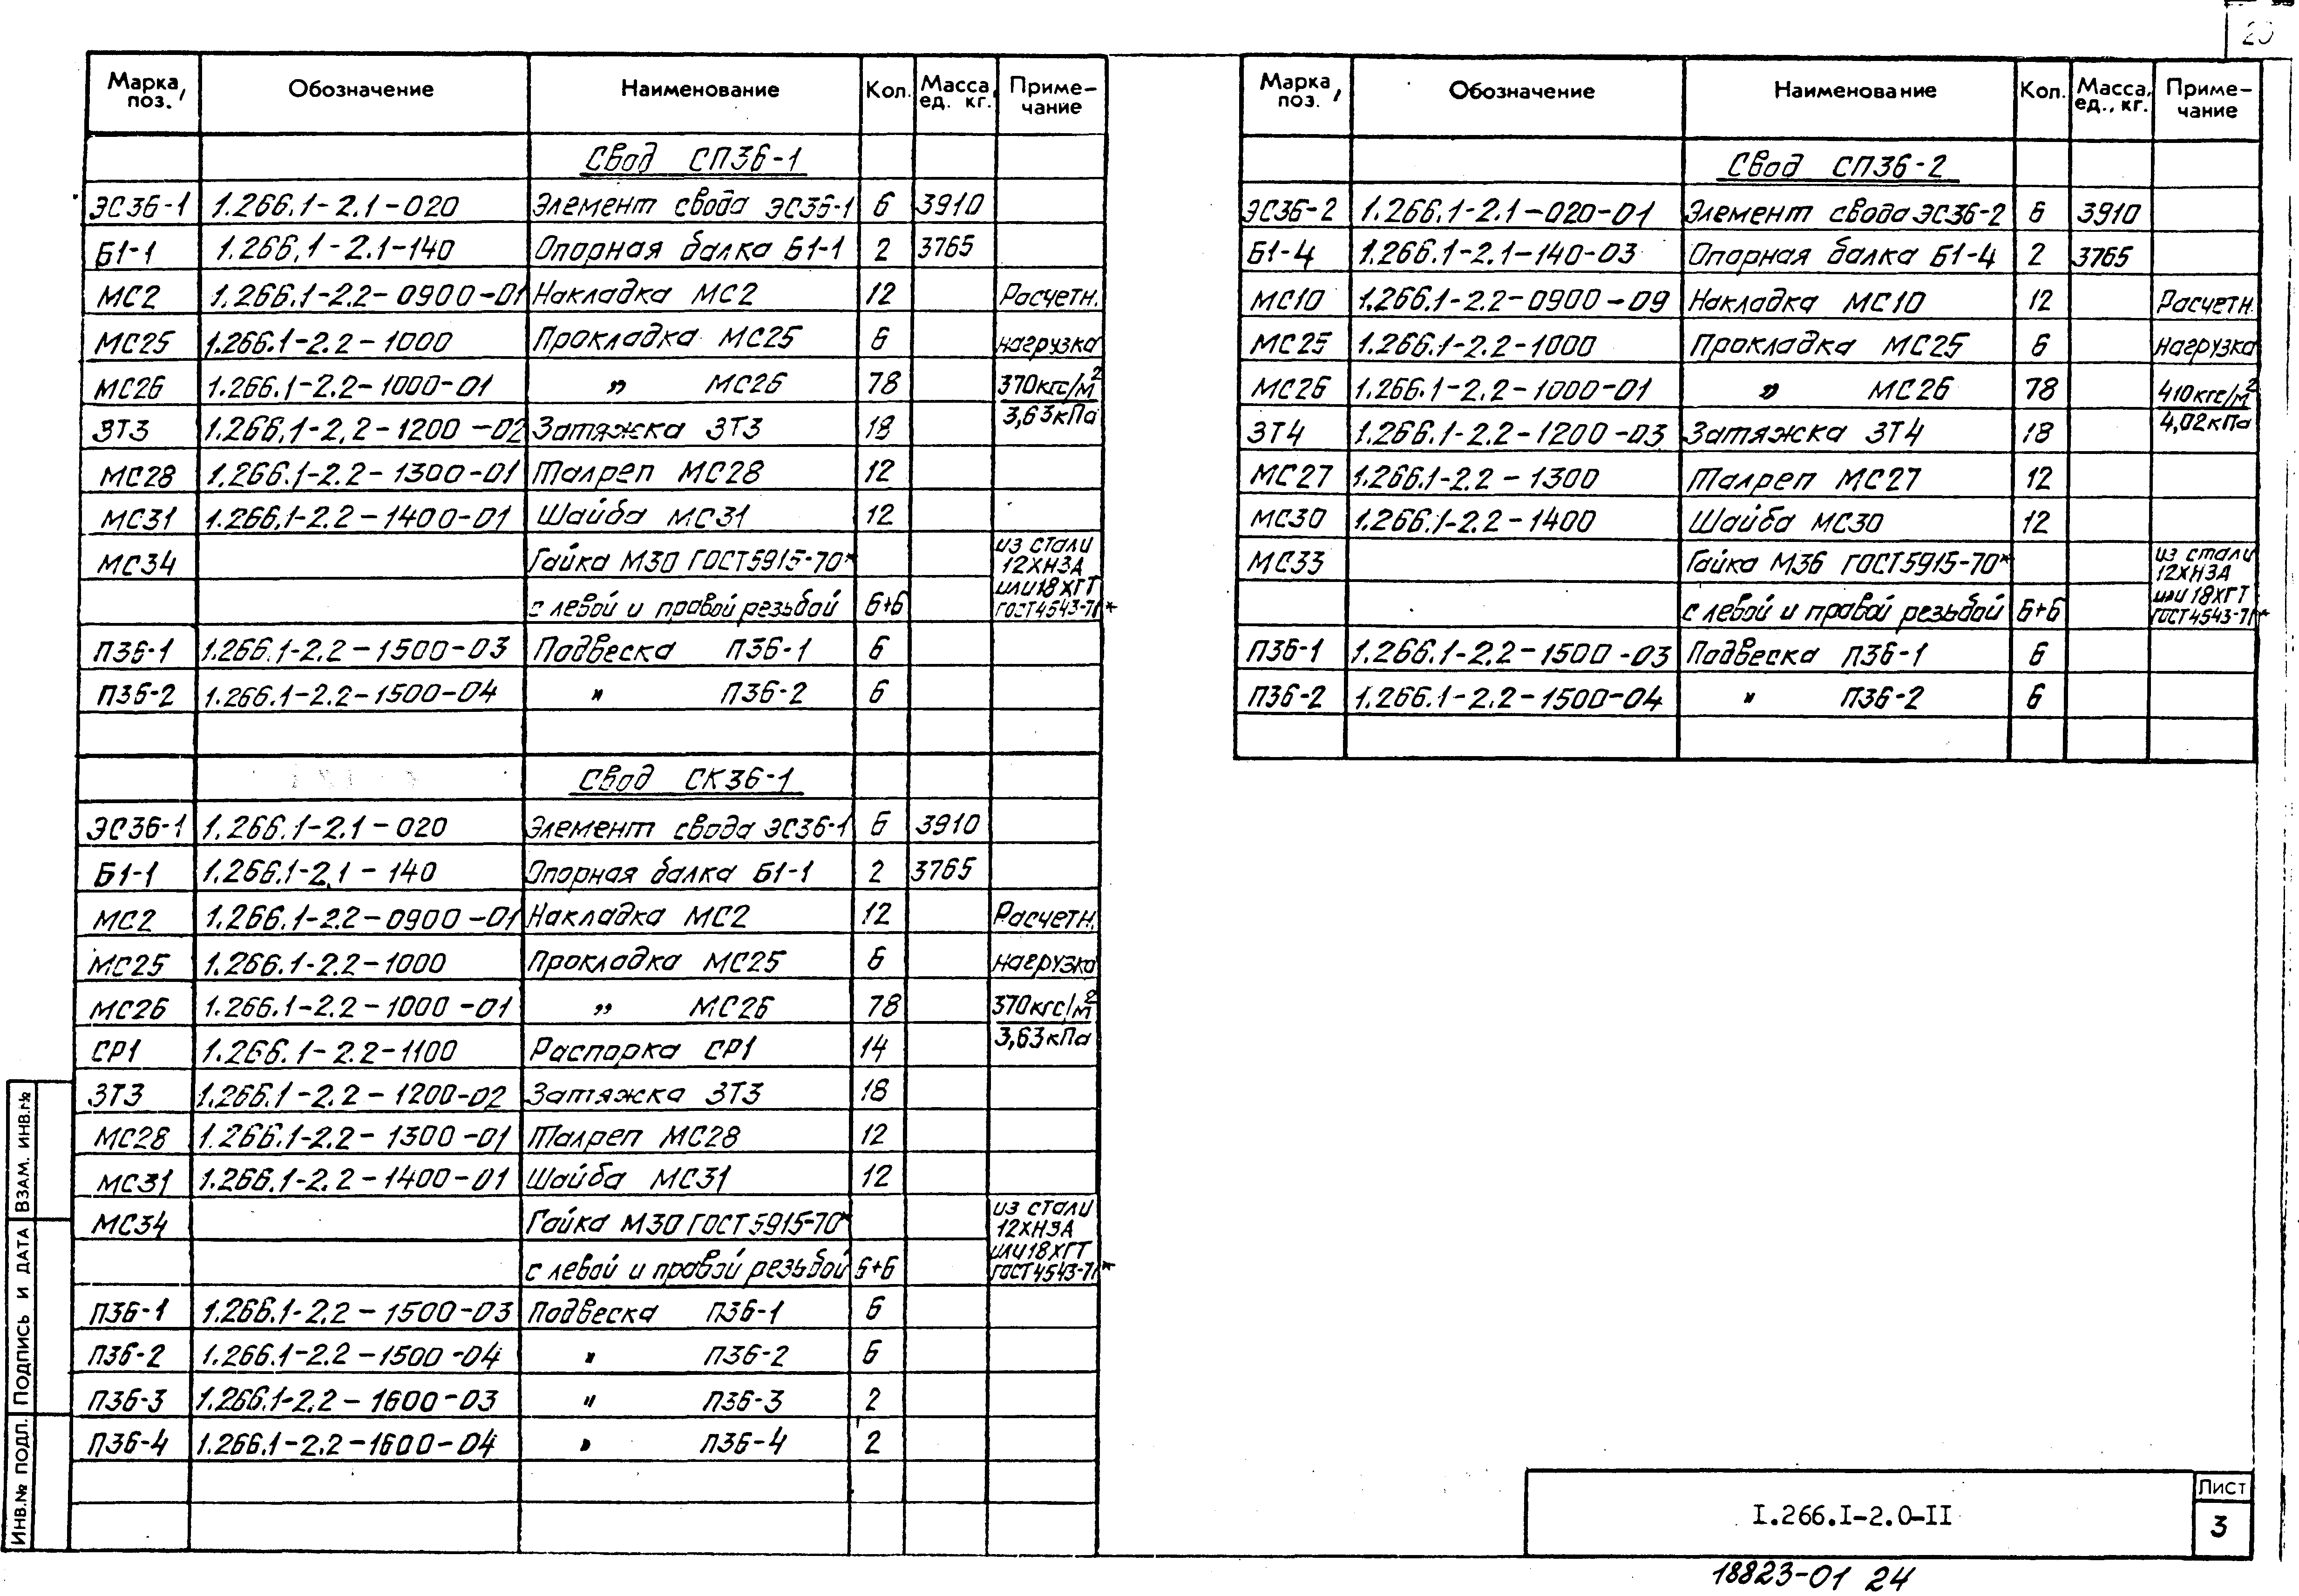 Марка, поз. Обозначение Наименование Кол. Масса, ед. кг. Приме-чание
Свод СП36-1
ЭС36-1 1.266.1-2.1-020 Элемент свода ЭС36-1 6 3910
Б1-1 1.266.1-2.1-140 Опорная балка Б1-1 2 3765
МС2 1.266.1-2.2-0900-01 Накладка МС2 12 Расчетн.
МС25 1.266.1-2.2-1000 Прокладка МС25 6 нагрузка
МС26 1.266.1-2.2-1000-01 " МС26 78 370кгс/м²
ЗТ3 1.266.1-2.2-1200-02 Затяжка ЗТ3 18 3,63кПа
МС28 1.266.1-2.2-1300-01 Талреп МС28 12
МС31 1.266.1-2.2-1400-01 Шайба МС31 12
МС34 Гайка М30 ГОСТ5915-70* из стали 12ХН3А
с левой и правой резьбой 6+6 или 18ХГТ ГОСТ4543-71*
П36-1 1.266.1-2.2-1500-03 Подвеска П36-1 6
П36-2 1.266.1-2.2-1500-04 " П36-2 6
Свод СК36-1
ЭС36-1 1.266.1-2.1-020 Элемент свода ЭС36-1 6 3910
Б1-1 1.266.1-2.1-140 Опорная балка Б1-1 2 3765
МС2 1.266.1-2.2-0900-01 Накладка МС2 12 Расчетн.
МС25 1.266.1-2.2-1000 Прокладка МС25 6 нагрузка
МС26 1.266.1-2.2-1000-01 " МС26 78 370кгс/м²
СР1 1.266.1-2.2-1100 Распорка СР1 14 3,63кПа
ЗТ3 1.266.1-2.2-1200-02 Затяжка ЗТ3 18
МС28 1.266.1-2.2-1300-01 Талреп МС28 12
МС31 1.266.1-2.2-1400-01 Шайба МС31 12
МС34 Гайка М30 ГОСТ5915-70* из стали 12ХН3А
с левой и правой резьбой 6+6 или 18ХГТ ГОСТ4543-71*
П36-1 1.266.1-2.2-1500-03 Подвеска П36-1 6
П36-2 1.266.1-2.2-1500-04 " П36-2 6
П36-3 1.266.1-2.2-1600-03 " П36-3 2
П36-4 1.266.1-2.2-1600-04 " П36-4 2
Марка, поз. Обозначение Наименование Кол. Масса, ед., кг. Приме-чание
Свод СП36-2
ЭС36-2 1.266.1-2.1-020-01 Элемент свода ЭС36-2 6 3910
Б1-4 1.266.1-2.1-140-03 Опорная балка Б1-4 2 3765
МС10 1.266.1-2.2-0900-09 Накладка МС10 12 Расчетн.
МС25 1.266.1-2.2-1000 Прокладка МС25 6 нагрузка
МС26 1.266.1-2.2-1000-01 " МС26 78 410кгс/м²
ЗТ4 1.266.1-2.2-1200-03 Затяжка ЗТ4 18 4,02кПа
МС27 1.266.1-2.2-1300 Талреп МС27 12
МС30 1.266.1-2.2-1400 Шайба МС30 12
МС33 Гайка М36 ГОСТ5915-70* из стали 12ХН3А
с левой и правой резьбой 6+6 или 18ХГТ ГОСТ4543-71*
П36-1 1.266.1-2.2-1500-03 Подвеска П36-1 6
П36-2 1.266.1-2.2-1500-04 " П36-2 6
ИНВ.№ ПОДЛ. ПОДПИСЬ И ДАТА ВЗАМ. ИНВ.№
I.266.I-2.0-II
Лист
3
18823-01 24